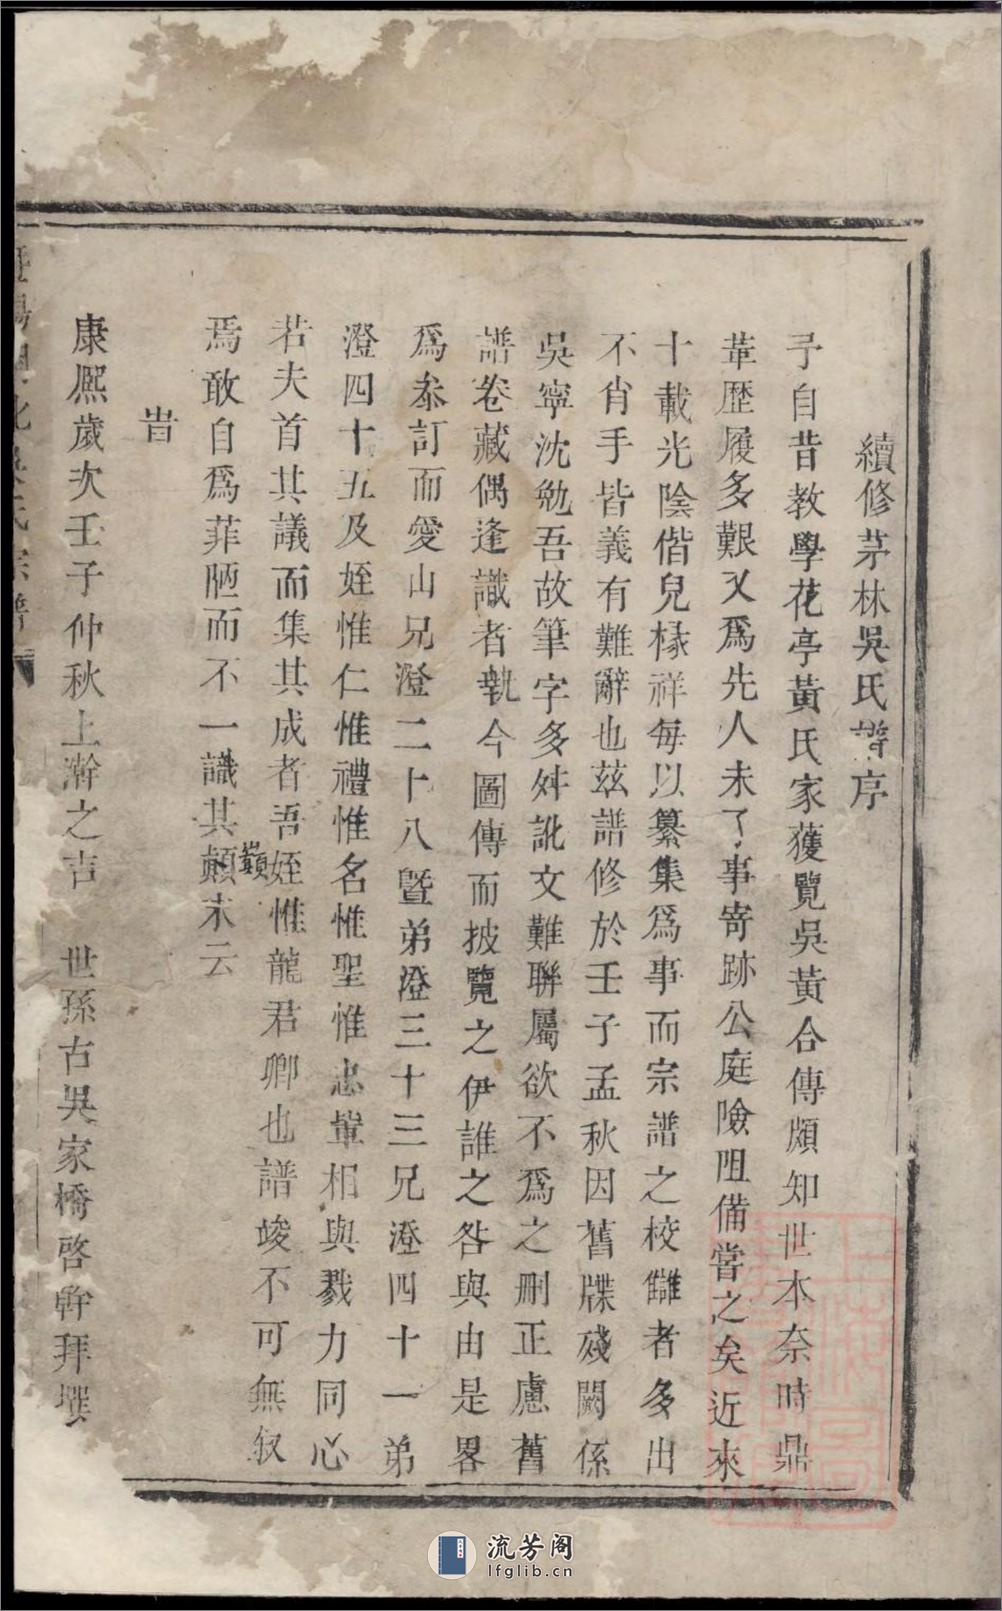 續修茅林吳氏譜序
予自昔教學花亭黃氏家獲覽吳黃合傳頗知世本奈時鼎
革歷履多艱又為先人未了事寄跡公庭險阻備嘗之矣近來
十載光陰偕兒椽祥每以纂集為事而宗譜之校讎者多出
不肖手皆義有難辭也茲譜修於壬子孟秋因舊牒殘闕係
吳寧沈勉吾故筆字多舛訛文難聯屬欲不爲之刪正慮舊
譜卷藏偶逢識者執今圖傳而披覽之伊誰之咎與由是畧
爲叅訂而愛山兄澄二十八暨弟澄三十三兄澄四十一弟
澄四十五及姪惟仁惟禮惟名惟聖惟忠輩相與戮力同心
若夫首其議而集其成者吾姪惟龍君卿也譜竣不可無叙
巔
焉敢自爲菲陋而不一識其顛末云
旹
康熈歲次壬子仲秋上澣之吉 世孫古吳家橋啓幹拜撰
氏宗譜
流芳阁
lfglib.cn